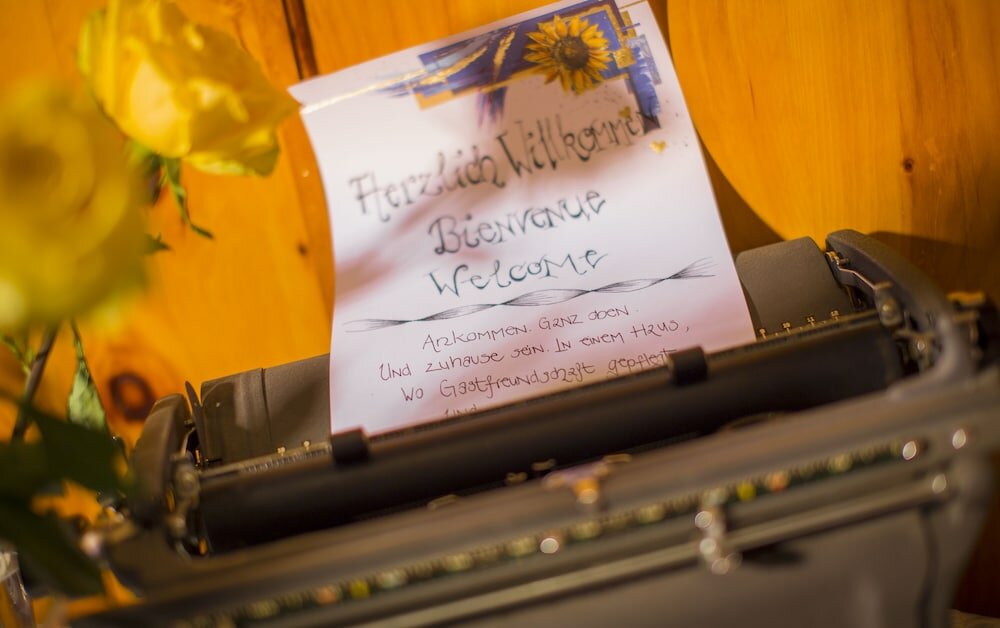 Herzlich Willkommen
Bienvenue
Welcome
Ankommen. Ganz oben.
Und zuhause sein. In einem Haus,
wo Gastfreundschaft gepflegt
und